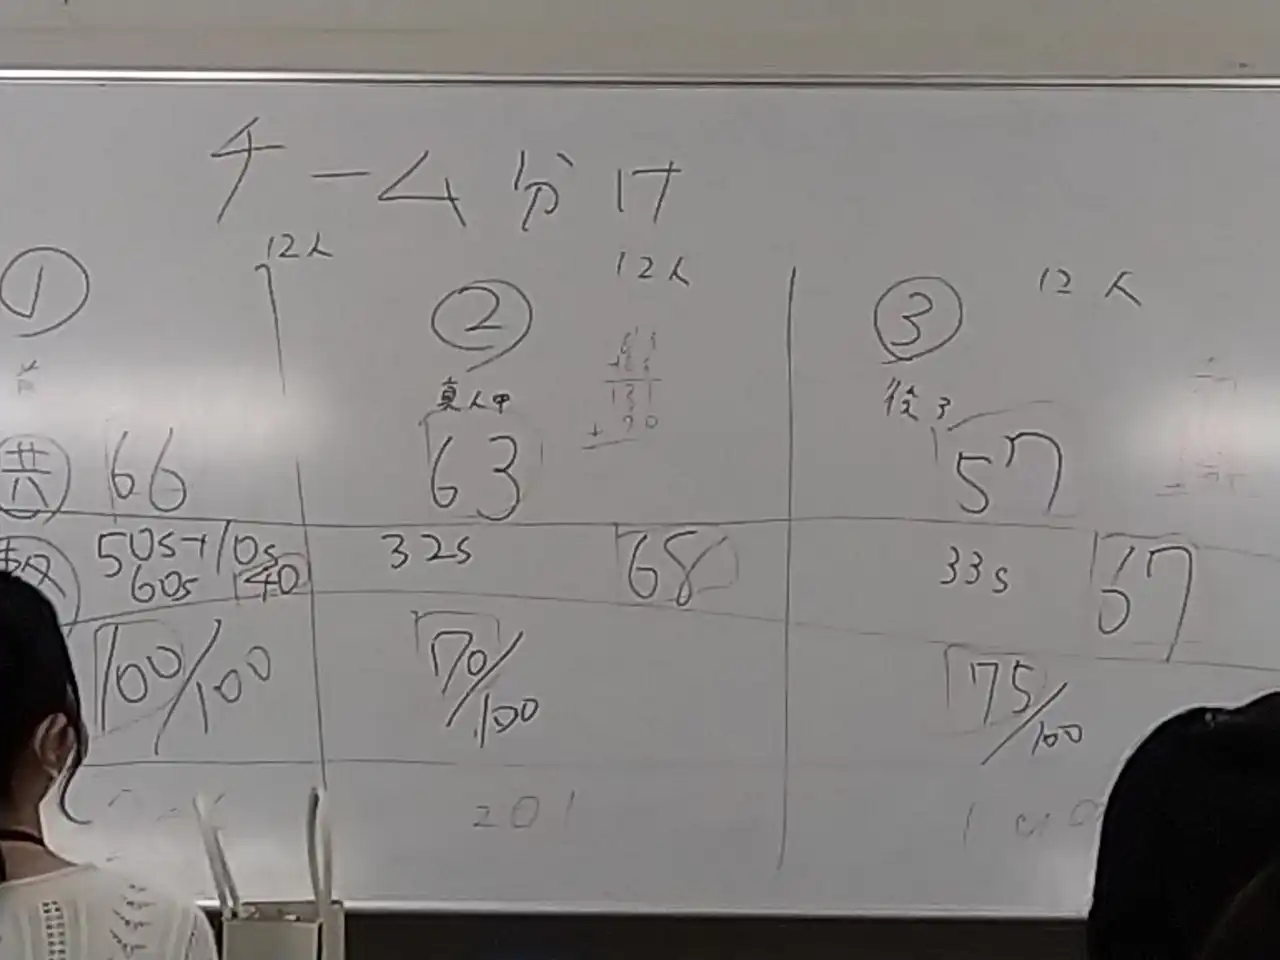 チーム分け
① 12人
② 12人
③ 12人
前
真ん中
後ろ
共 66
63
57
50s+10s
60s 40
32s 68
33s 67
100/100
70/100
75/100
131
201